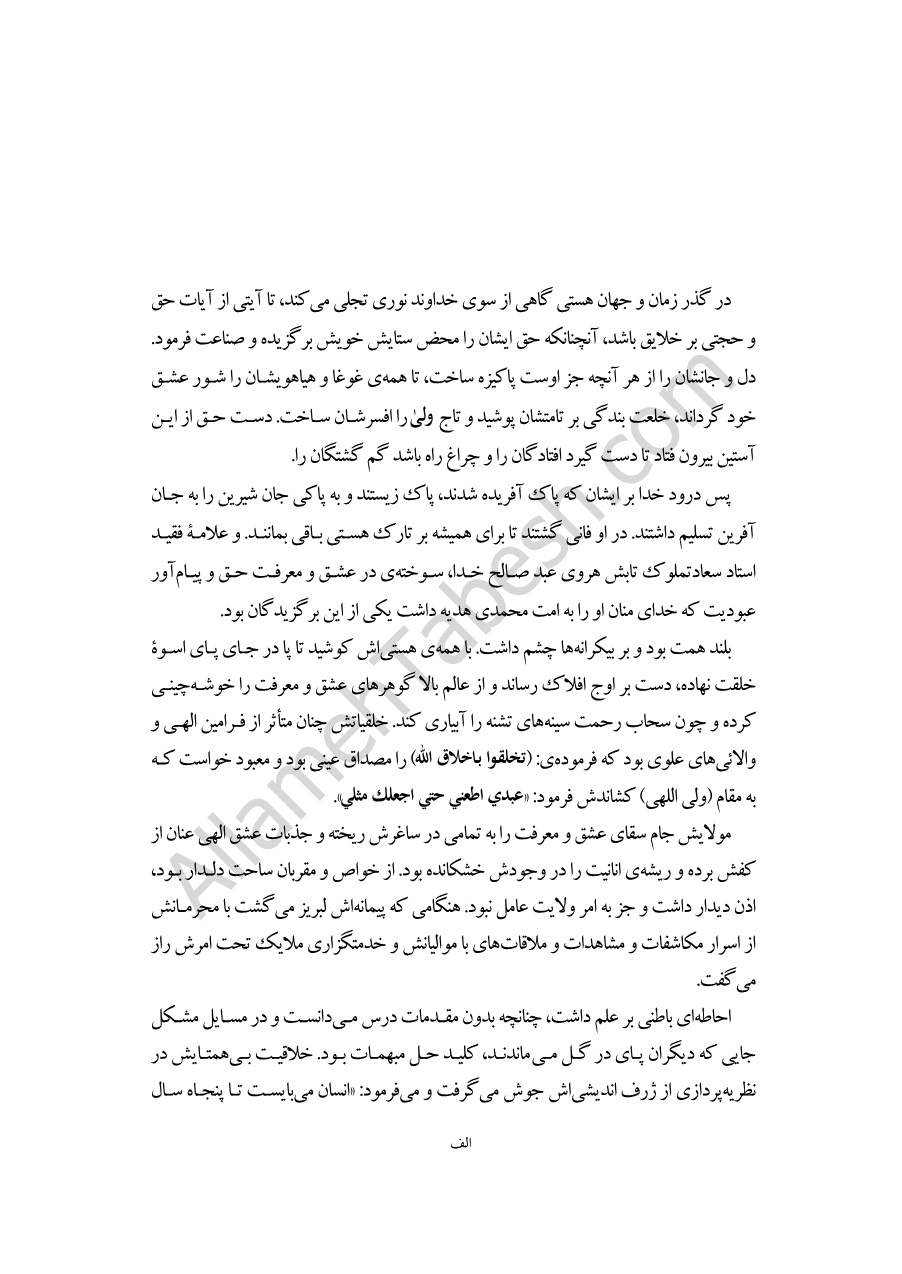 در گذر زمان و جهان هستی گاهی از سوی خداوند نوری تجلی می‌کند، تا آیتی از آیات حق
و حجتی بر خلایق باشد، آنچنانکه حق ایشان را محض ستایش خویش برگزیده و صناعت فرمود.
دل و جانشان را از هر آنچه جز اوست پاکیزه ساخت، تا همه‌ی غوغا و هیاهویشان را شور عشق
خود گرداند، خلعت بندگی بر تامتشان پوشید و تاج ولیٰ را افسرشان ساخت. دست حق از این
آستین بیرون فتاد تا دست گیرد افتادگان را و چراغ راه باشد گم گشتگان را.
پس درود خدا بر ایشان که پاک آفریده شدند، پاک زیستند و به پاکی جان شیرین را به جان
آفرین تسلیم داشتند. در او فانی گشتند تا برای همیشه بر تارک هستی باقی بمانند. و علامهٔ فقید
استاد سعادتملوک تابش هروی عبد صالح خدا، سوخته‌ی در عشق و معرفت حق و پیام‌آور
عبودیت که خدای منان او را به امت محمدی هدیه داشت یکی از این برگزیدگان بود.
بلند همت بود و بر بیکرانه‌ها چشم داشت. با همه‌ی هستی‌اش کوشید تا پا در جای پای اسوهٔ
خلقت نهاده، دست بر اوج افلاک رساند و از عالم بالا گوهرهای عشق و معرفت را خوشه‌چینی
کرده و چون سحاب رحمت سینه‌های تشنه را آبیاری کند. خلقیاتش چنان متأثر از فرامین الهی و
والائی‌های علوی بود که فرموده‌ی: (تخلقوا باخلاق الله) را مصداق عینی بود و معبود خواست که
به مقام (ولی اللهی) کشاندش فرمود: «عبدي اطعني حتي اجعلك مثلي».
مولایش جام سقای عشق و معرفت را به تمامی در ساغرش ریخته و جذبات عشق الهی عنان از
کفش برده و ریشه‌ی انانیت را در وجودش خشکانده بود. از خواص و مقربان ساحت دلدار بود،
اذن دیدار داشت و جز به امر ولایت عامل نبود. هنگامی که پیمانه‌اش لبریز می‌گشت با محرمانش
از اسرار مکاشفات و مشاهدات و ملاقات‌های با موالیانش و خدمتگزاری ملایک تحت امرش راز
می‌گفت.
احاطه‌ای باطنی بر علم داشت، چنانچه بدون مقدمات درس می‌دانست و در مسایل مشکل
جایی که دیگران پای در گل می‌ماندند، کلید حل مبهمات بود. خلاقیت بی‌همتایش در
نظریه‌پردازی از ژرف اندیشی‌اش جوش می‌گرفت و می‌فرمود: «انسان می‌بایست تا پنجاه سال
الف
AllamehTabesh.com